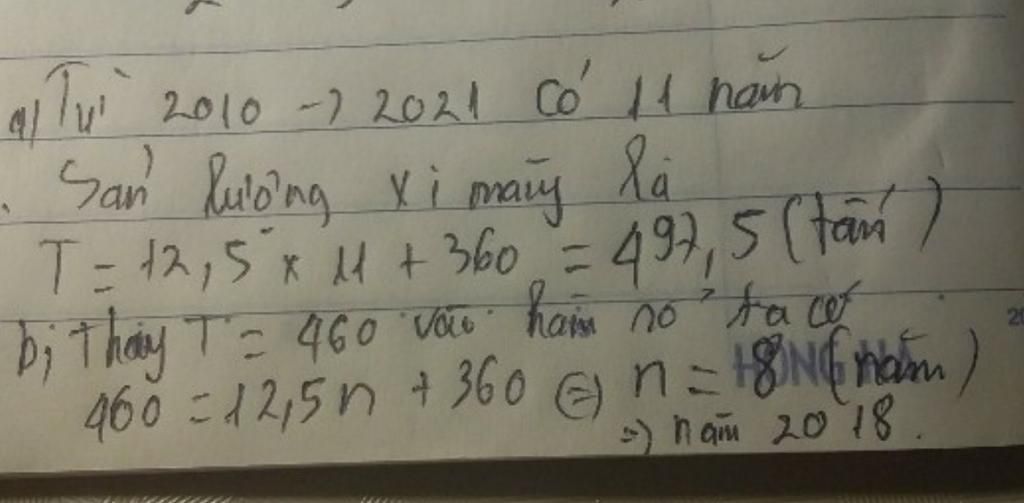 a) Từ 2010 -> 2021 có 11 năm
. Sản lượng xi măng là
T = 12,5 x 11 + 360 = 497,5 (tấn)
b; thay T = 460 vào hàm số ta có
460 = 12,5n + 360 <=> n = 8 (năm)
=> năm 2018.
HỒNG HÀ